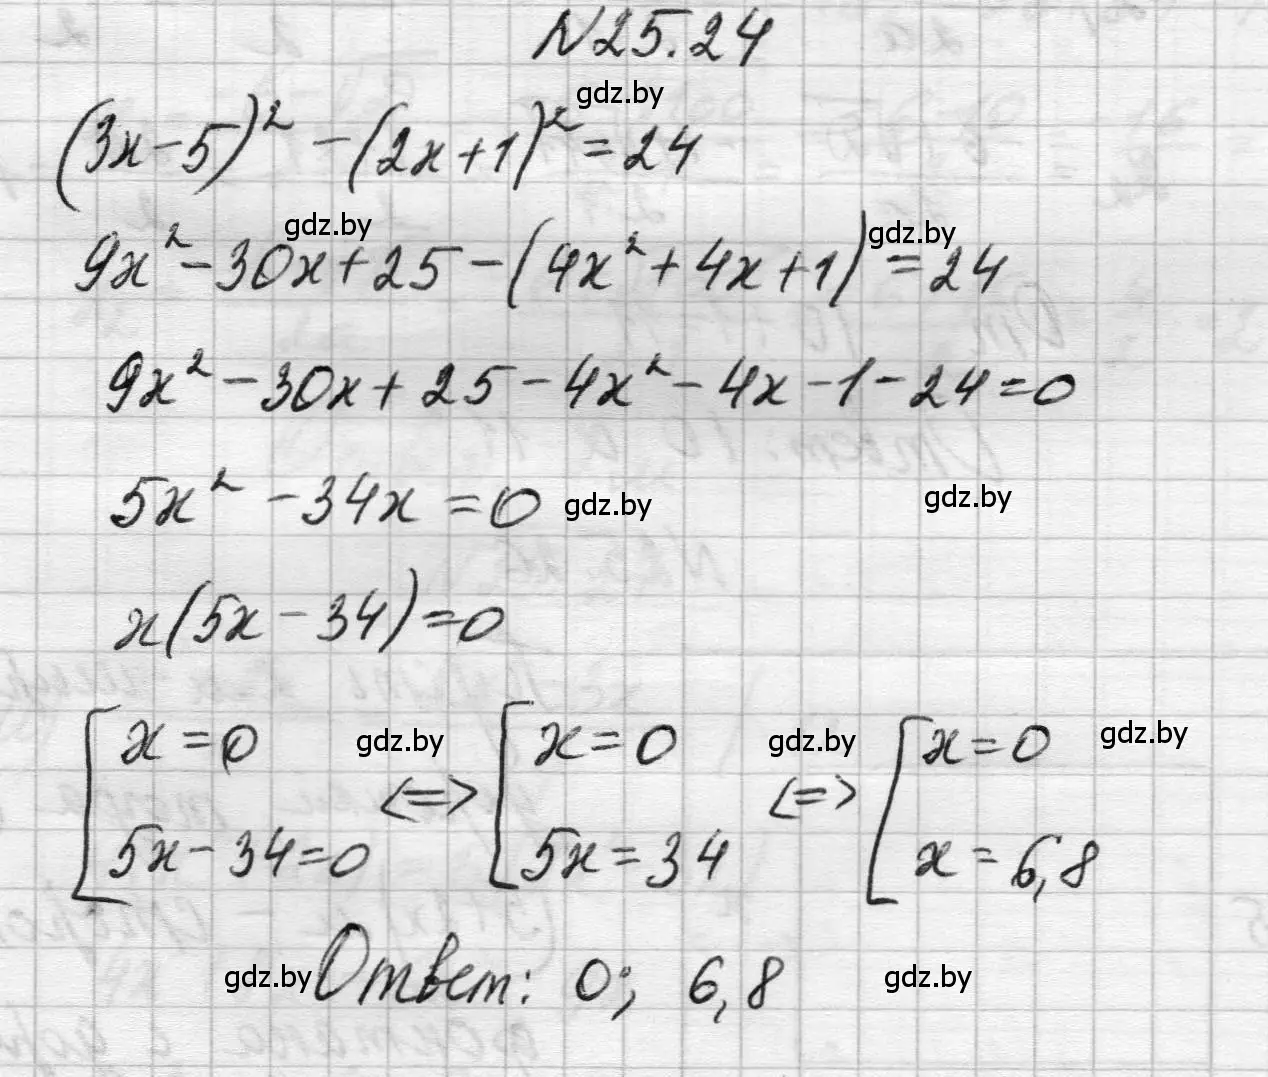 N25.24
gdz.by
(3x-5)² - (2x+1)² = 24
gdz.by gdz.by
9x² - 30x + 25 - (4x² + 4x + 1) = 24
9x² - 30x + 25 - 4x² - 4x - 1 - 24 = 0
5x² - 34x = 0 gdz.by gdz.by
x(5x - 34) = 0
[x = 0 gdz.by [x = 0 gdz.by [x = 0 gdz.by
<=> <=>
5x - 34 = 0 5x = 34 x = 6,8
gdz.by Ответ: 0; 6,8 gdz.by